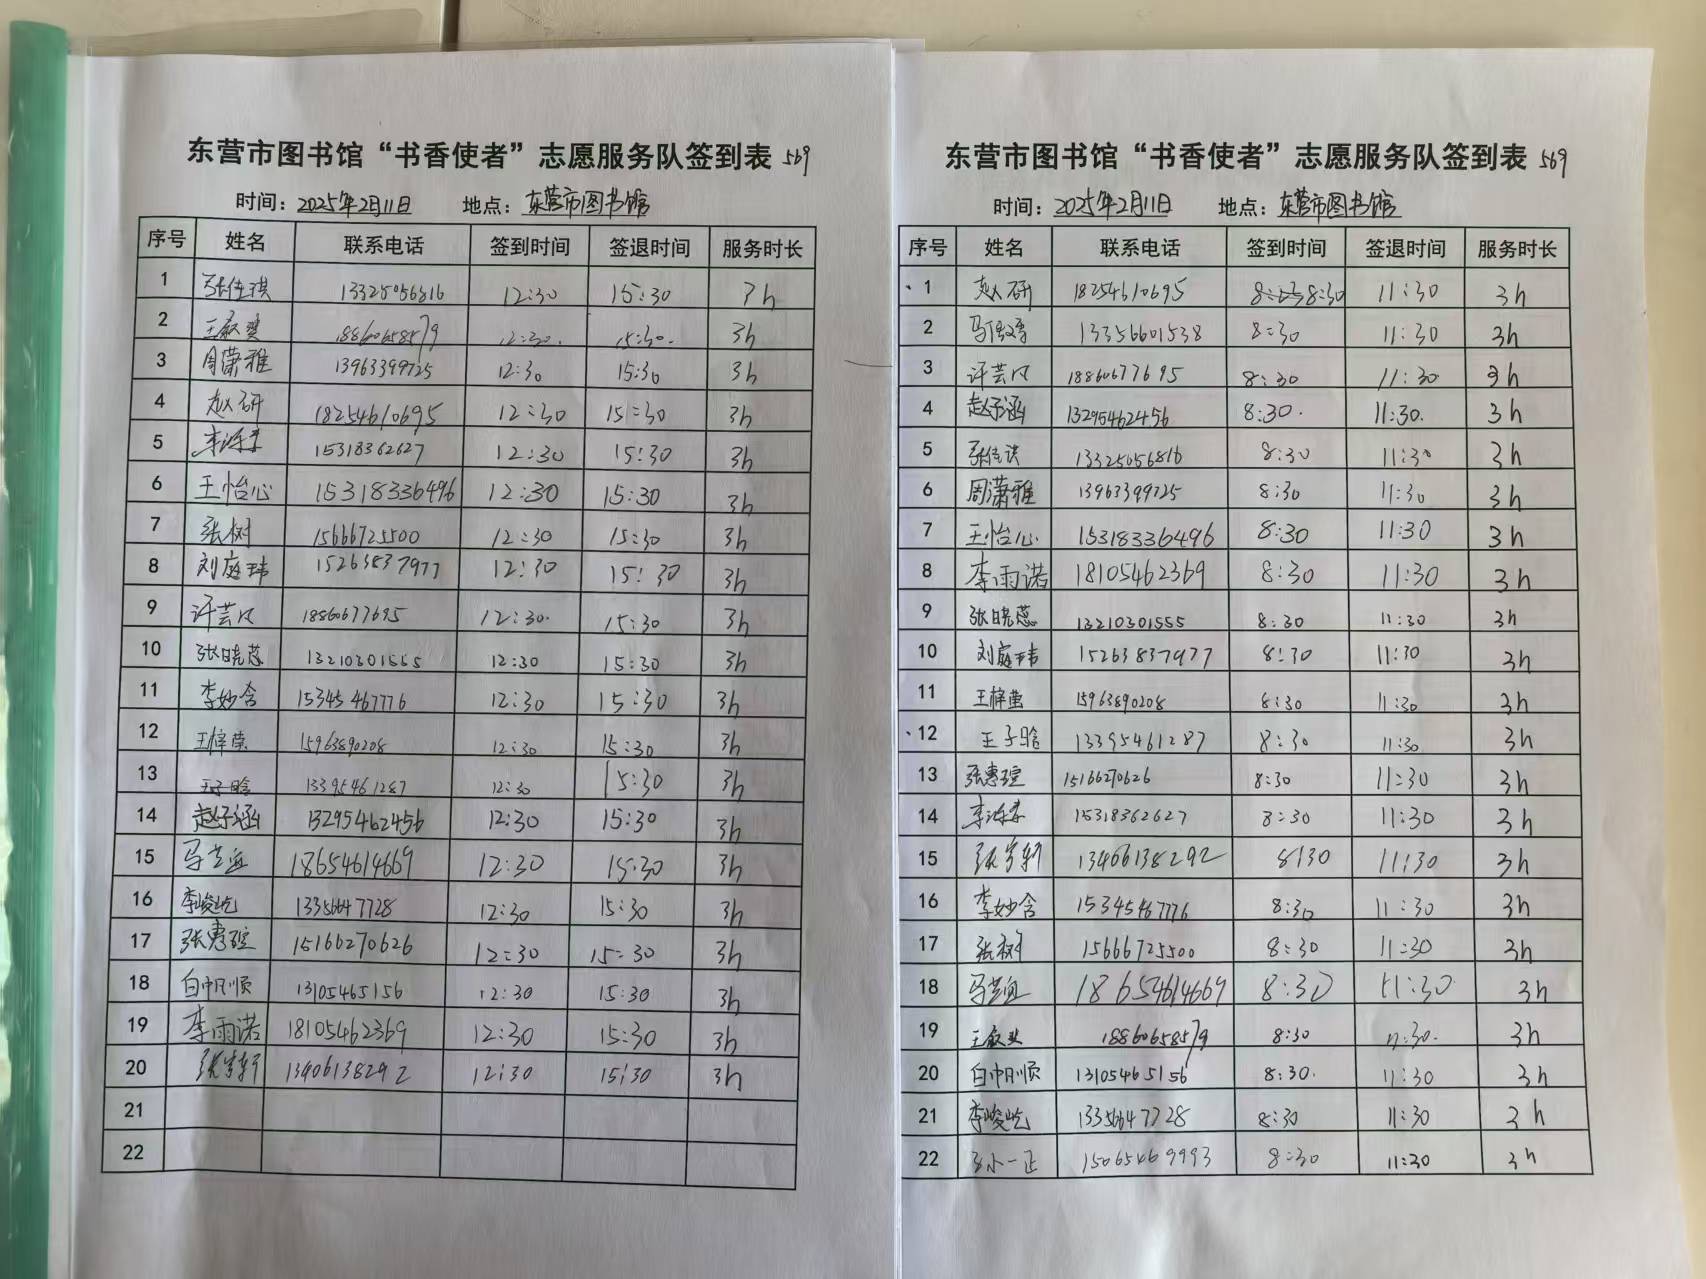 东营市图书馆“书香使者”志愿服务队签到表 569
时间：2025年2月11日 地点：东营市图书馆
序号 姓名 联系电话 签到时间 签退时间 服务时长
1 张佳琪 13325056816 12:30 15:30 3h
2 18860658579 12:30. 15:30. 3h
3 周潇雅 13963399725 12:30 15:30 3h
4 赵研 18254610695 12:30 15:30 3h
5 15318362627 12:30 15:30 3h
6 王怡心 15318336496 12:30 15:30 3h
7 张树 15666725500 12:30 15:30 3h
8 刘庭玮 15263837977 12:30 15:30 3h
9 许芸凡 18860677695 12:30. 15:30 3h
10 张晓蕊 13210301555 12:30 15:30 3h
11 李妙含 15345467776 12:30 15:30 3h
12 15963890208 12:30 15:30 3h
13 王子晗 13395461287 12:30 15:30 3h
14 赵子涵 13295462456 12:30 15:30 3h
15 18654614669 12:30 15:30 3h
16 李峻屹 13356647728 12:30 15:30 3h
17 张惠瑄 15166270626 12:30 15:30 3h
18 白帅顺 13105465156 12:30 15:30 3h
19 李雨诺 18105462369 12:30 15:30 3h
20 13406138292 12:30 15:30 3h
21
22
东营市图书馆“书香使者”志愿服务队签到表 569
时间：2025年2月11日 地点：东营市图书馆
序号 姓名 联系电话 签到时间 签退时间 服务时长
1 赵研 18254610695 8:30 11:30 3h
2 13356601538 8:30 11:30 3h
3 许芸凡 18860677695 8:30 11:30 3h
4 赵子涵 13295462456 8:30. 11:30. 3h
5 张佳琪 13325056816 8:30 11:30 3h
6 周潇雅 13963399725 8:30 11:30 3h
7 王怡心 15318336496 8:30 11:30 3h
8 李雨诺 18105462369 8:30 11:30 3h
9 张晓蕊 13210301555 8:30 11:30 3h
10 刘庭玮 15263837977 8:30 11:30 3h
11 15963890208 8:30 11:30 3h
12 王子晗 13395461287 8:30 11:30 3h
13 张惠瑄 15166270626 8:30 11:30 3h
14 15318362627 8:30 11:30 3h
15 13406138292 8:30 11:30 3h
16 李妙含 15345467776 8:30 11:30 3h
17 张树 15666725500 8:30 11:30 3h
18 18654614669 8:30 11:30 3h
19 18860658579 8:30 11:30. 3h
20 白帅顺 13105465156 8:30. 11:30 3h
21 李峻屹 13356647728 8:30 11:30 3h
22 15065469993 8:30 11:30 3h